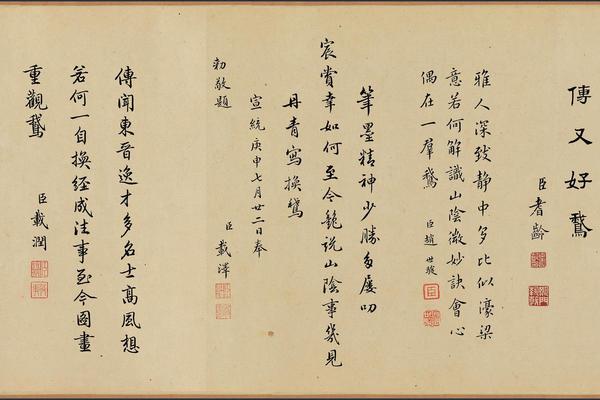 傳又好鵞
臣耆齡
雅人深致静中多比似濠梁
意若何解識山陰微妙訣會心
偶在一羣鵞
臣趙世駿
筆墨精神少勝多屢叨
宸賞幸如何至今豔說山陰事幾見
丹青寫換鵞
宣統庚申七月廿二日奉
勑敬題
臣載澤
傳聞東晉逸才多名士高風想
若何一自換經成往事至今圖畫
重觀鵞
臣載潤